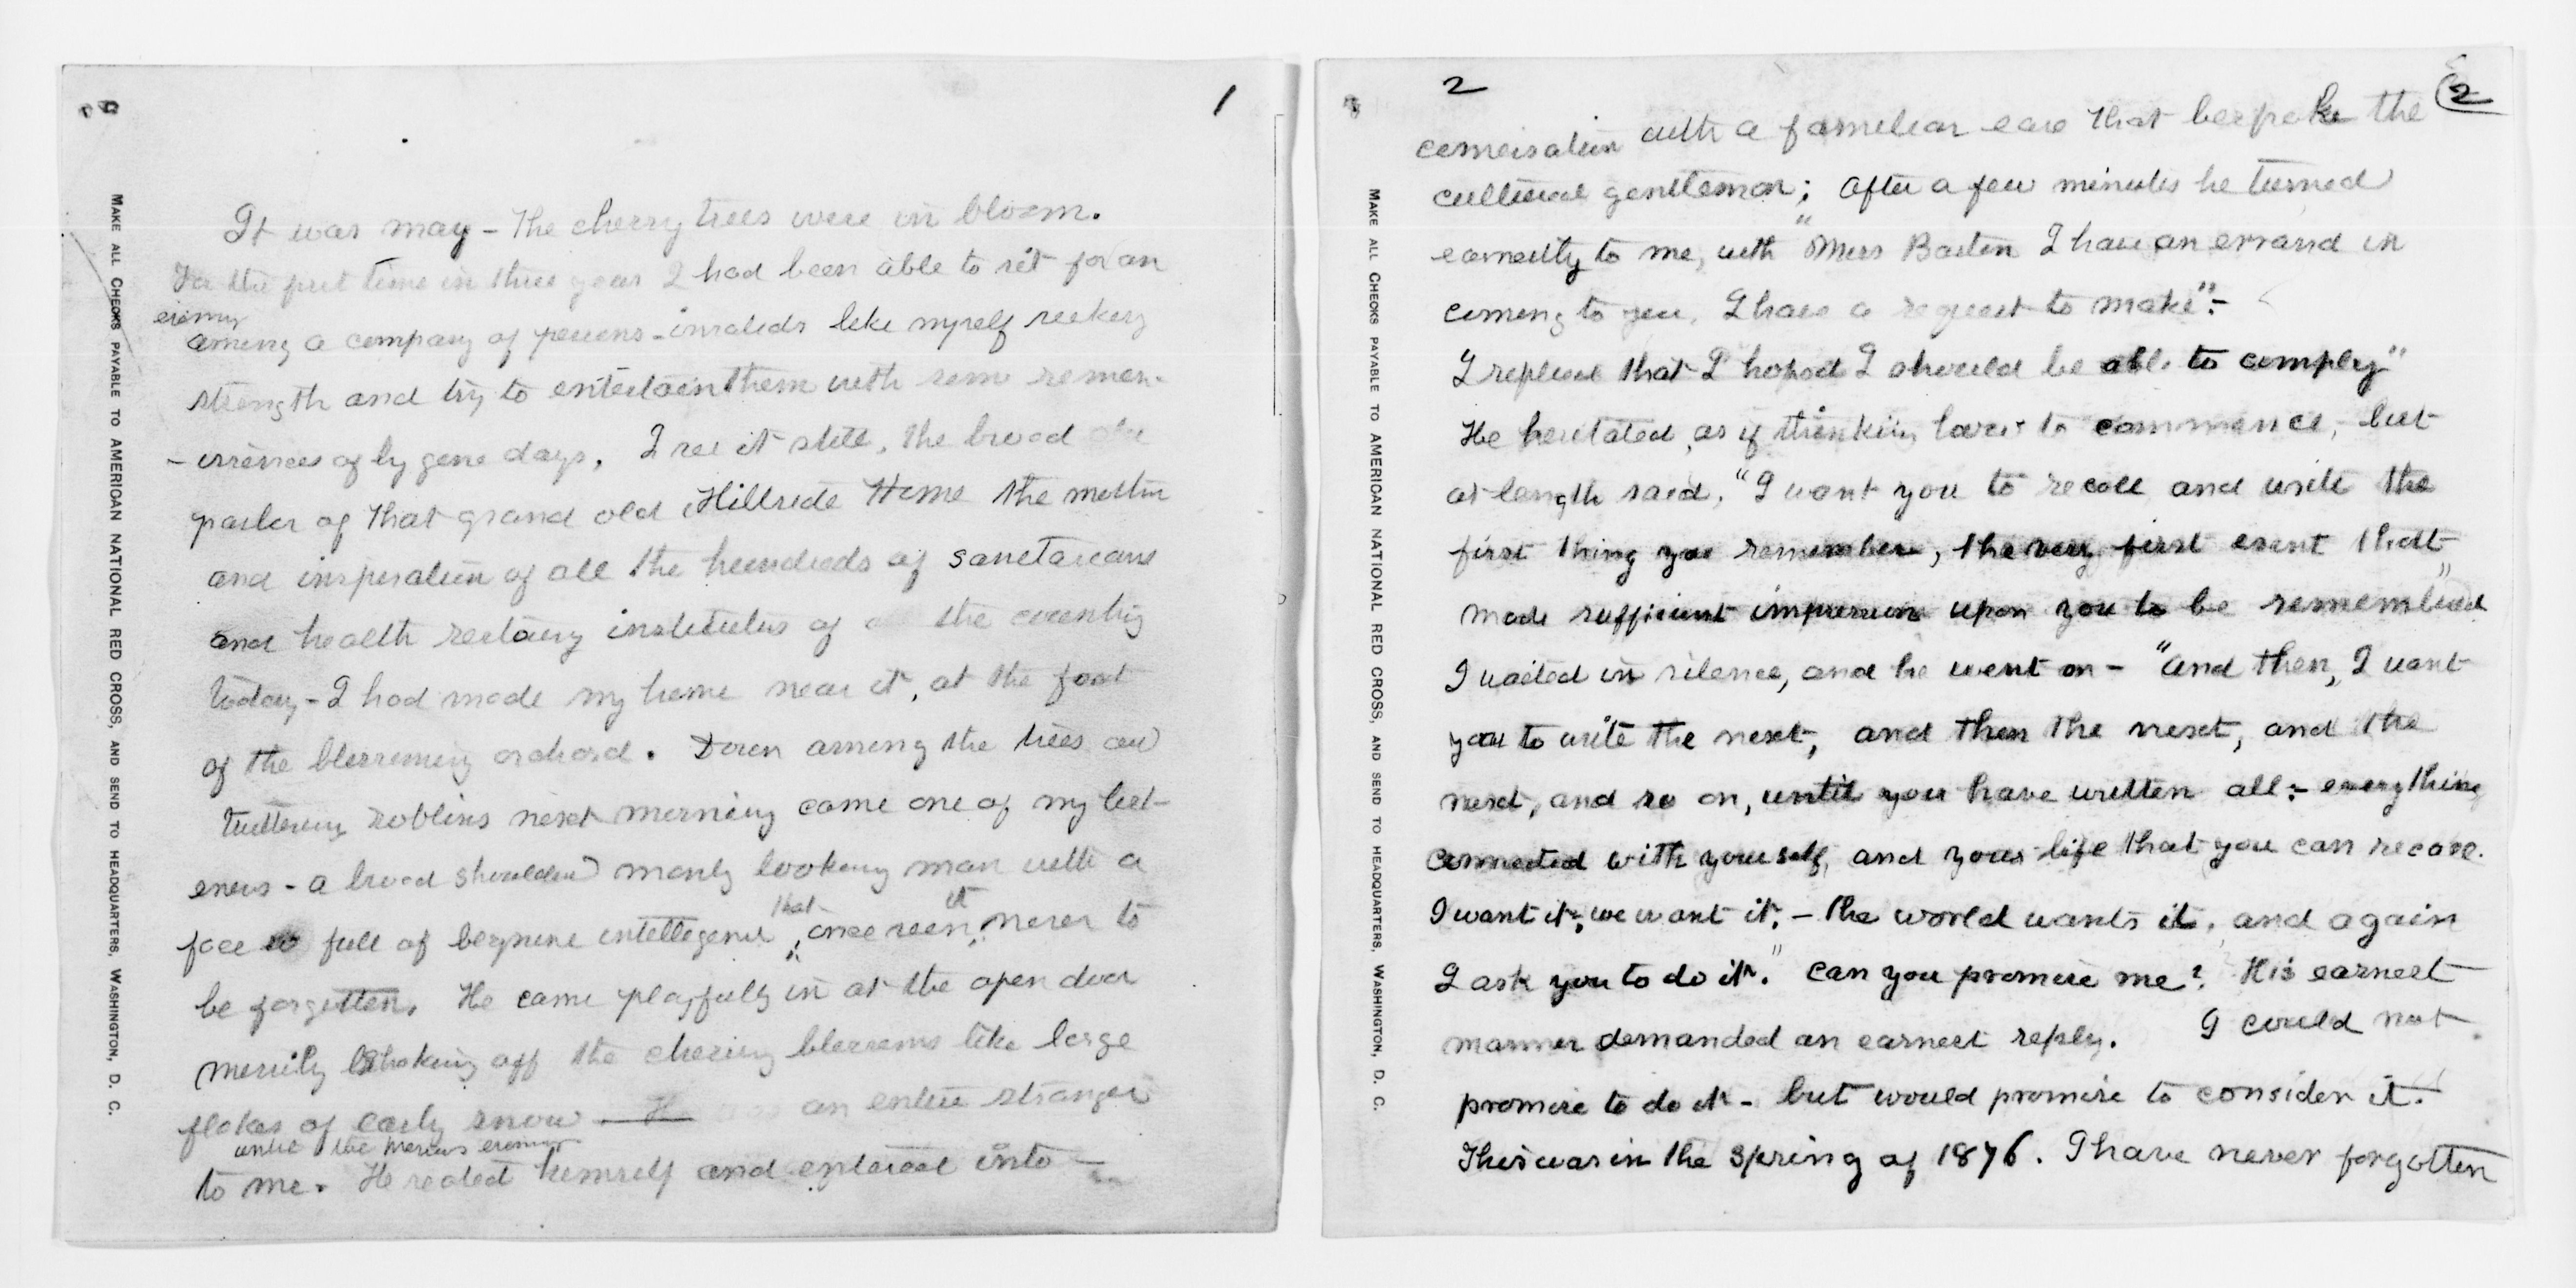 1
It was May – The cherry trees were in bloom.
For the first time in three years I had been able to sit for an
evening
among a company of persons – invalids like myself seeking
strength and try to entertain them with some remin-
- iscences of by gone days. I see it still, the broad
parlor of that grand old Hillside Home the mother
and inspiration of all the hundreds of sanetarians
and health restoring institutes of the country
today – I had made my home near it, at the foot
of the blossoming orchard. Down among the trees and
twittering roblins next morning came one of my list-
eners – a broad shouldered manly looking man with a
that it
face so full of benignne intellegence, once seen, never to
be forgotten. He came playfully in at the open door
merrily shaking off the cherry blossoms like large
flakes of early snow – He was an entire stranger
until the previous evening
to me. He seated himself and entered into –
MAKE ALL CHECKS PAYABLE TO AMERICAN NATIONAL RED CROSS, AND SEND TO HEADQUARTERS, WASHINGTON, D. C.
2
2
conversation with a familiar ease that bespoke the
cultured gentleman; After a few minutes he turned
earnestly to me, with "Miss Barton I have an errand in
coming to you, I have a request to make":–
I replied that I hoped I should be able to comply"
He hesitated, as if thinking how to commence, but
at length said, "I want you to recall and write the
first thing you remember, the very first event that
made sufficient impression upon you to be remembered"
I waited in silence, and he went on – "And then, I want
you to write the next, and then the next, and the
next, and so on, until you have written all:– everything
connected with yourself, and your life that you can recall.
I want it; we want it, – the world wants it, and again
I ask you to do it." Can you promise me? His earnest
manner demanded an earnest reply. I could not
promise to do it – but would promise to consider it.
This was in the Spring of 1876. I have never forgotten
MAKE ALL CHECKS PAYABLE TO AMERICAN NATIONAL RED CROSS, AND SEND TO HEADQUARTERS, WASHINGTON, D. C.